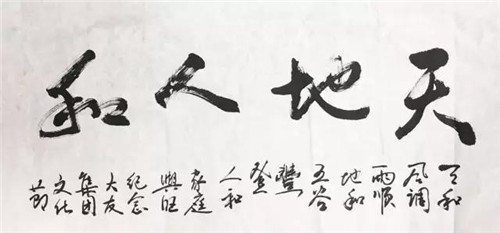 天地人和
天和
风调
雨顺
地和
五谷
豐
登
人和
家庭
興旺
纪念
大友
集团
文化
节